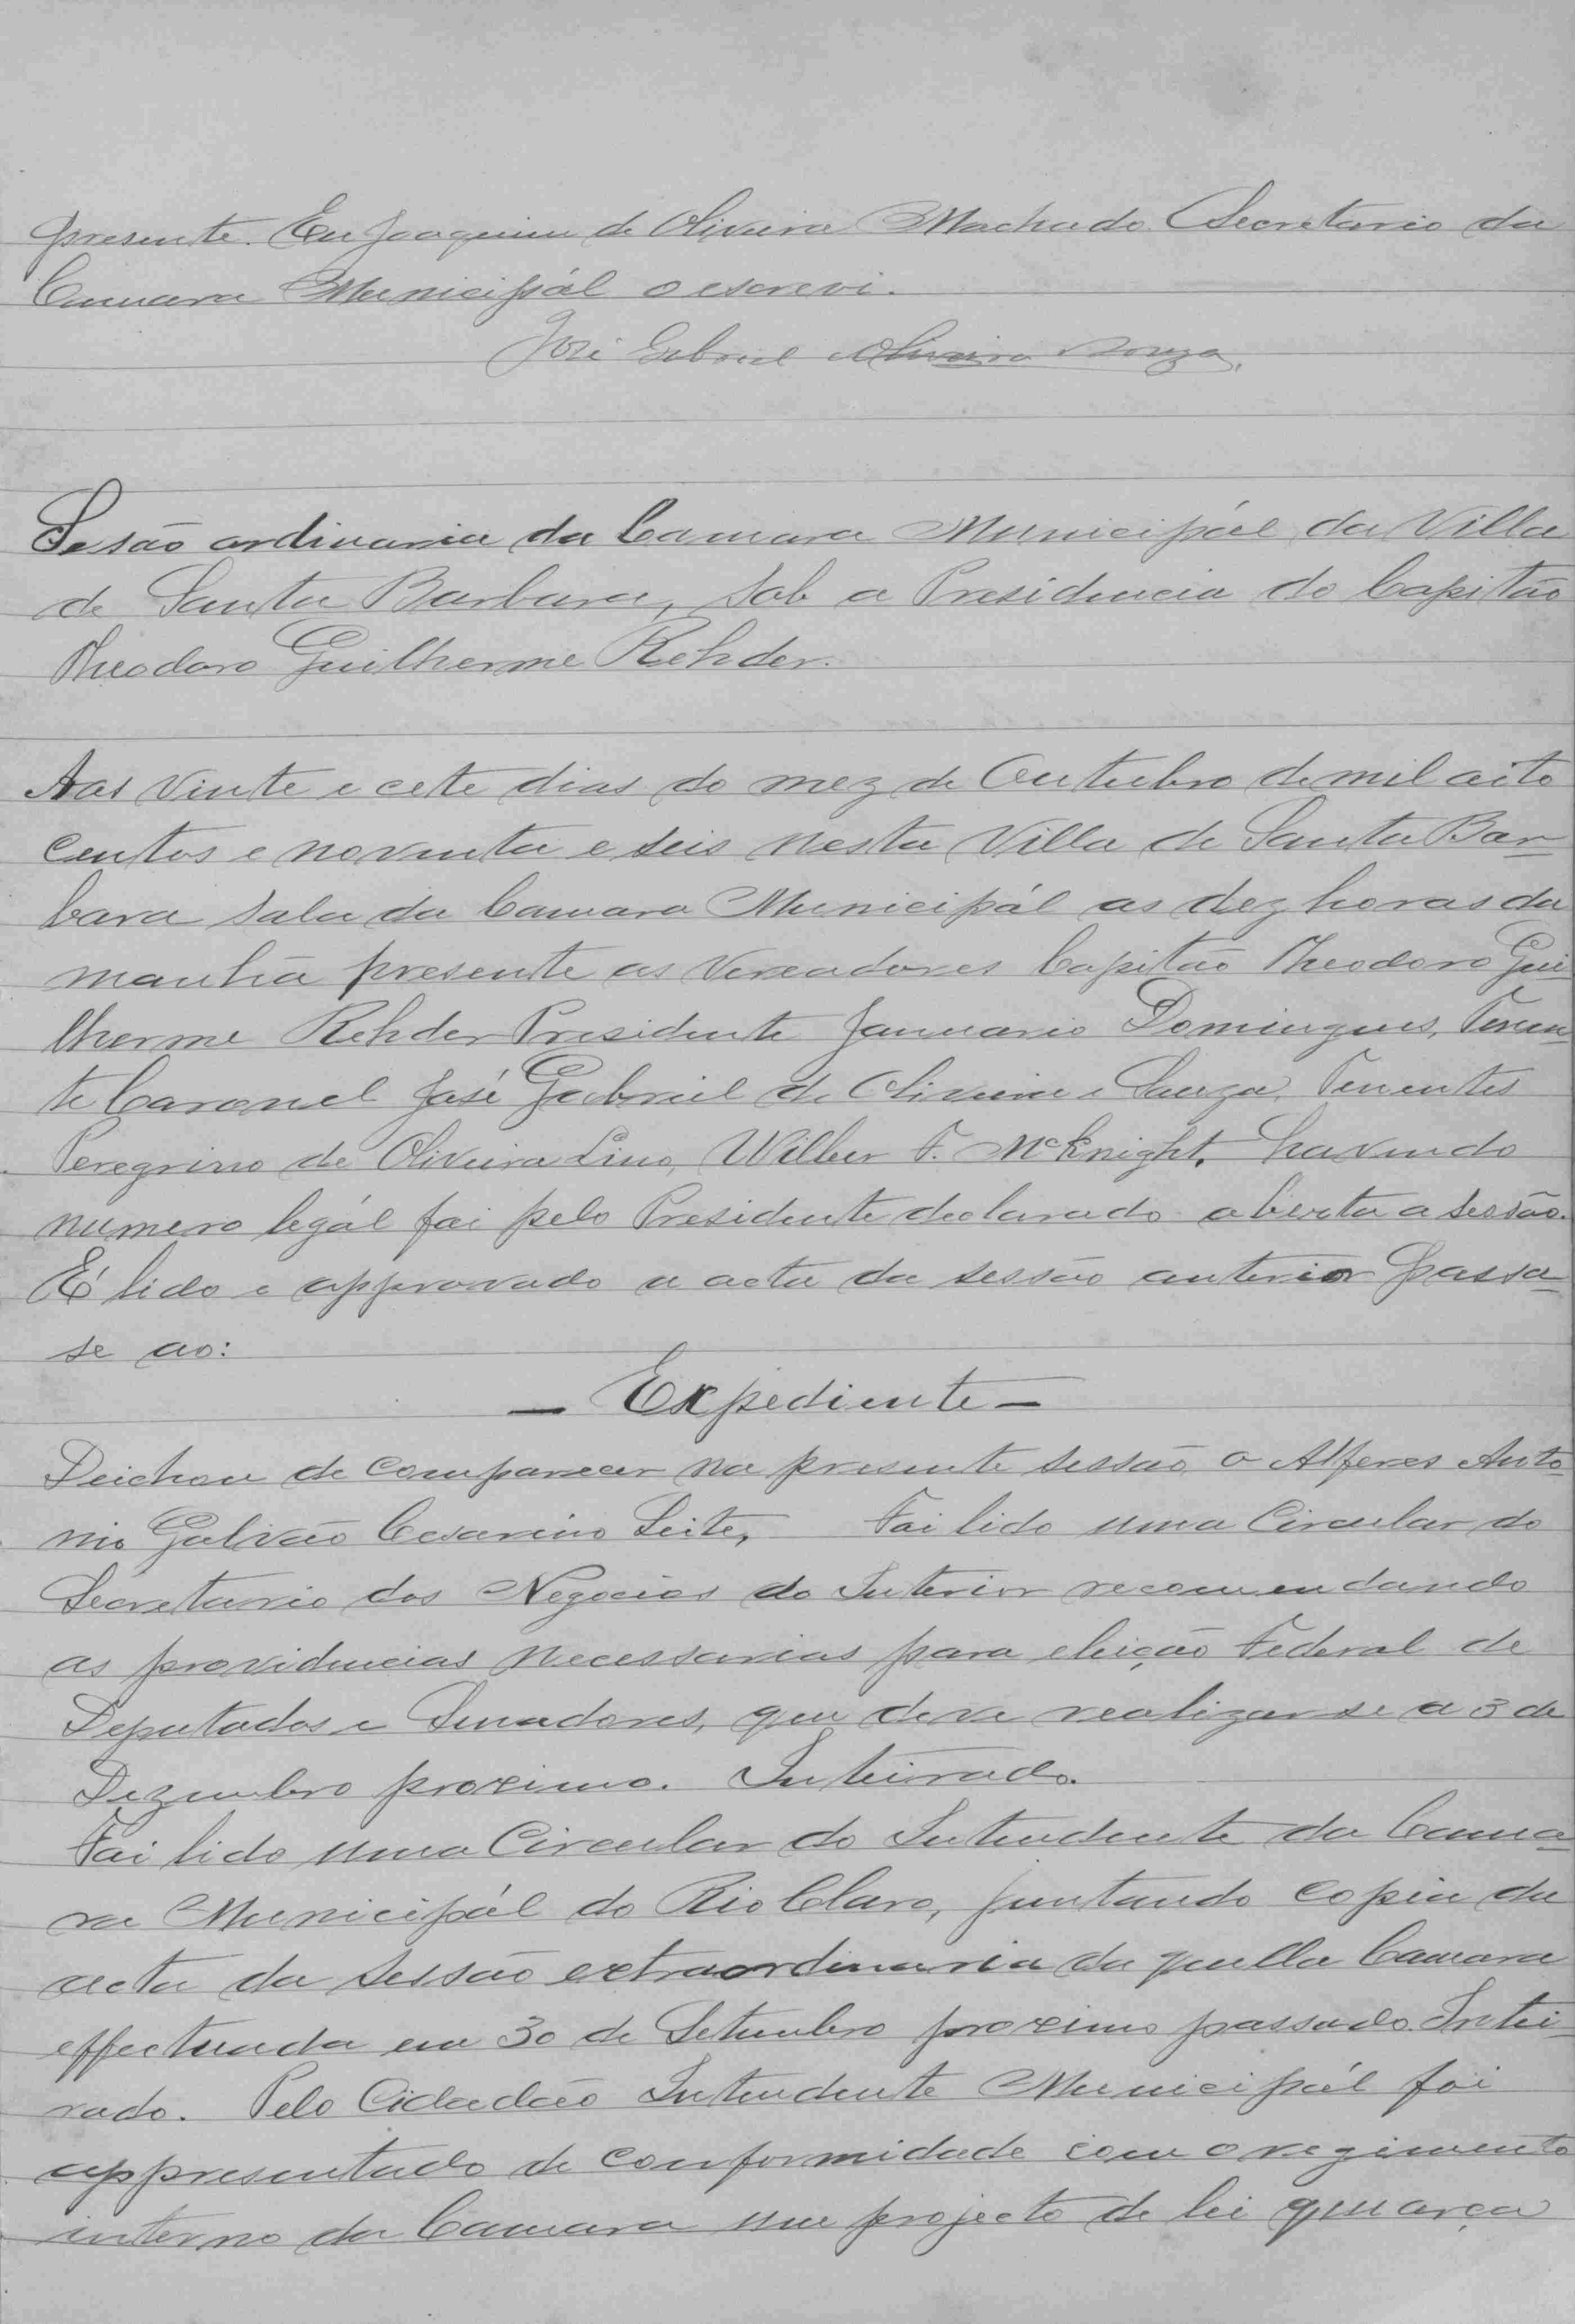 presente. Eu Joaquim de Oliveira Machado Secretario da
Camara Municipál o escrevi.
José Gabriel Oliveira Souza.
Sesão ordinaria da Camara Municipál da Villa
de Santa Barbara, sob a Presidencia do Capitão
Theodoro Guilherme Rehder.
Aos vinte e cete dias do mez de Outubro de mil oito
centos e noventa e seis nesta Villa de Santa Bar-
bara sala da Camara Municipál as dez horas da
manhã presente os Vereadores Capitão Theodoro Gui-
lherme Rehder Presidente Januario Domingues, Tenen-
te Coronel José Gabriel de Oliveira e Souza, Tenentes
Peregrino de Oliveira Lino, Wilber F. McKnight. havendo
numero legál foi pelo Presidente declarado aberta a sessão.
É lido e approvado a acta da sessão anterior passa-
se ao:
— Expediente —
Deichou de comparecer na presente sessão o Alferes Anto-
nio Galvão Cesarino Leite, Foi lido uma Circular do
Secretario dos Negocios do Interior recomendando
as providencias necessarias para eleição Federal de
Deputados e Senadores, que deve realizar se a 3 de
Dezembro proximo. Inteirado.
Foi lido uma Circular do Intendente da Cama-
ra Municipál do Rio Claro, juntando copia da
acta da sessão extraordinaria da quella Camara
effectuada em 30 de Setembro proximo passado. Intei-
rado. Pelo Cidadão Intendente Municipál foi
appresentado de conformidade com o regimento
interno da Camara um projecto de lei que orça